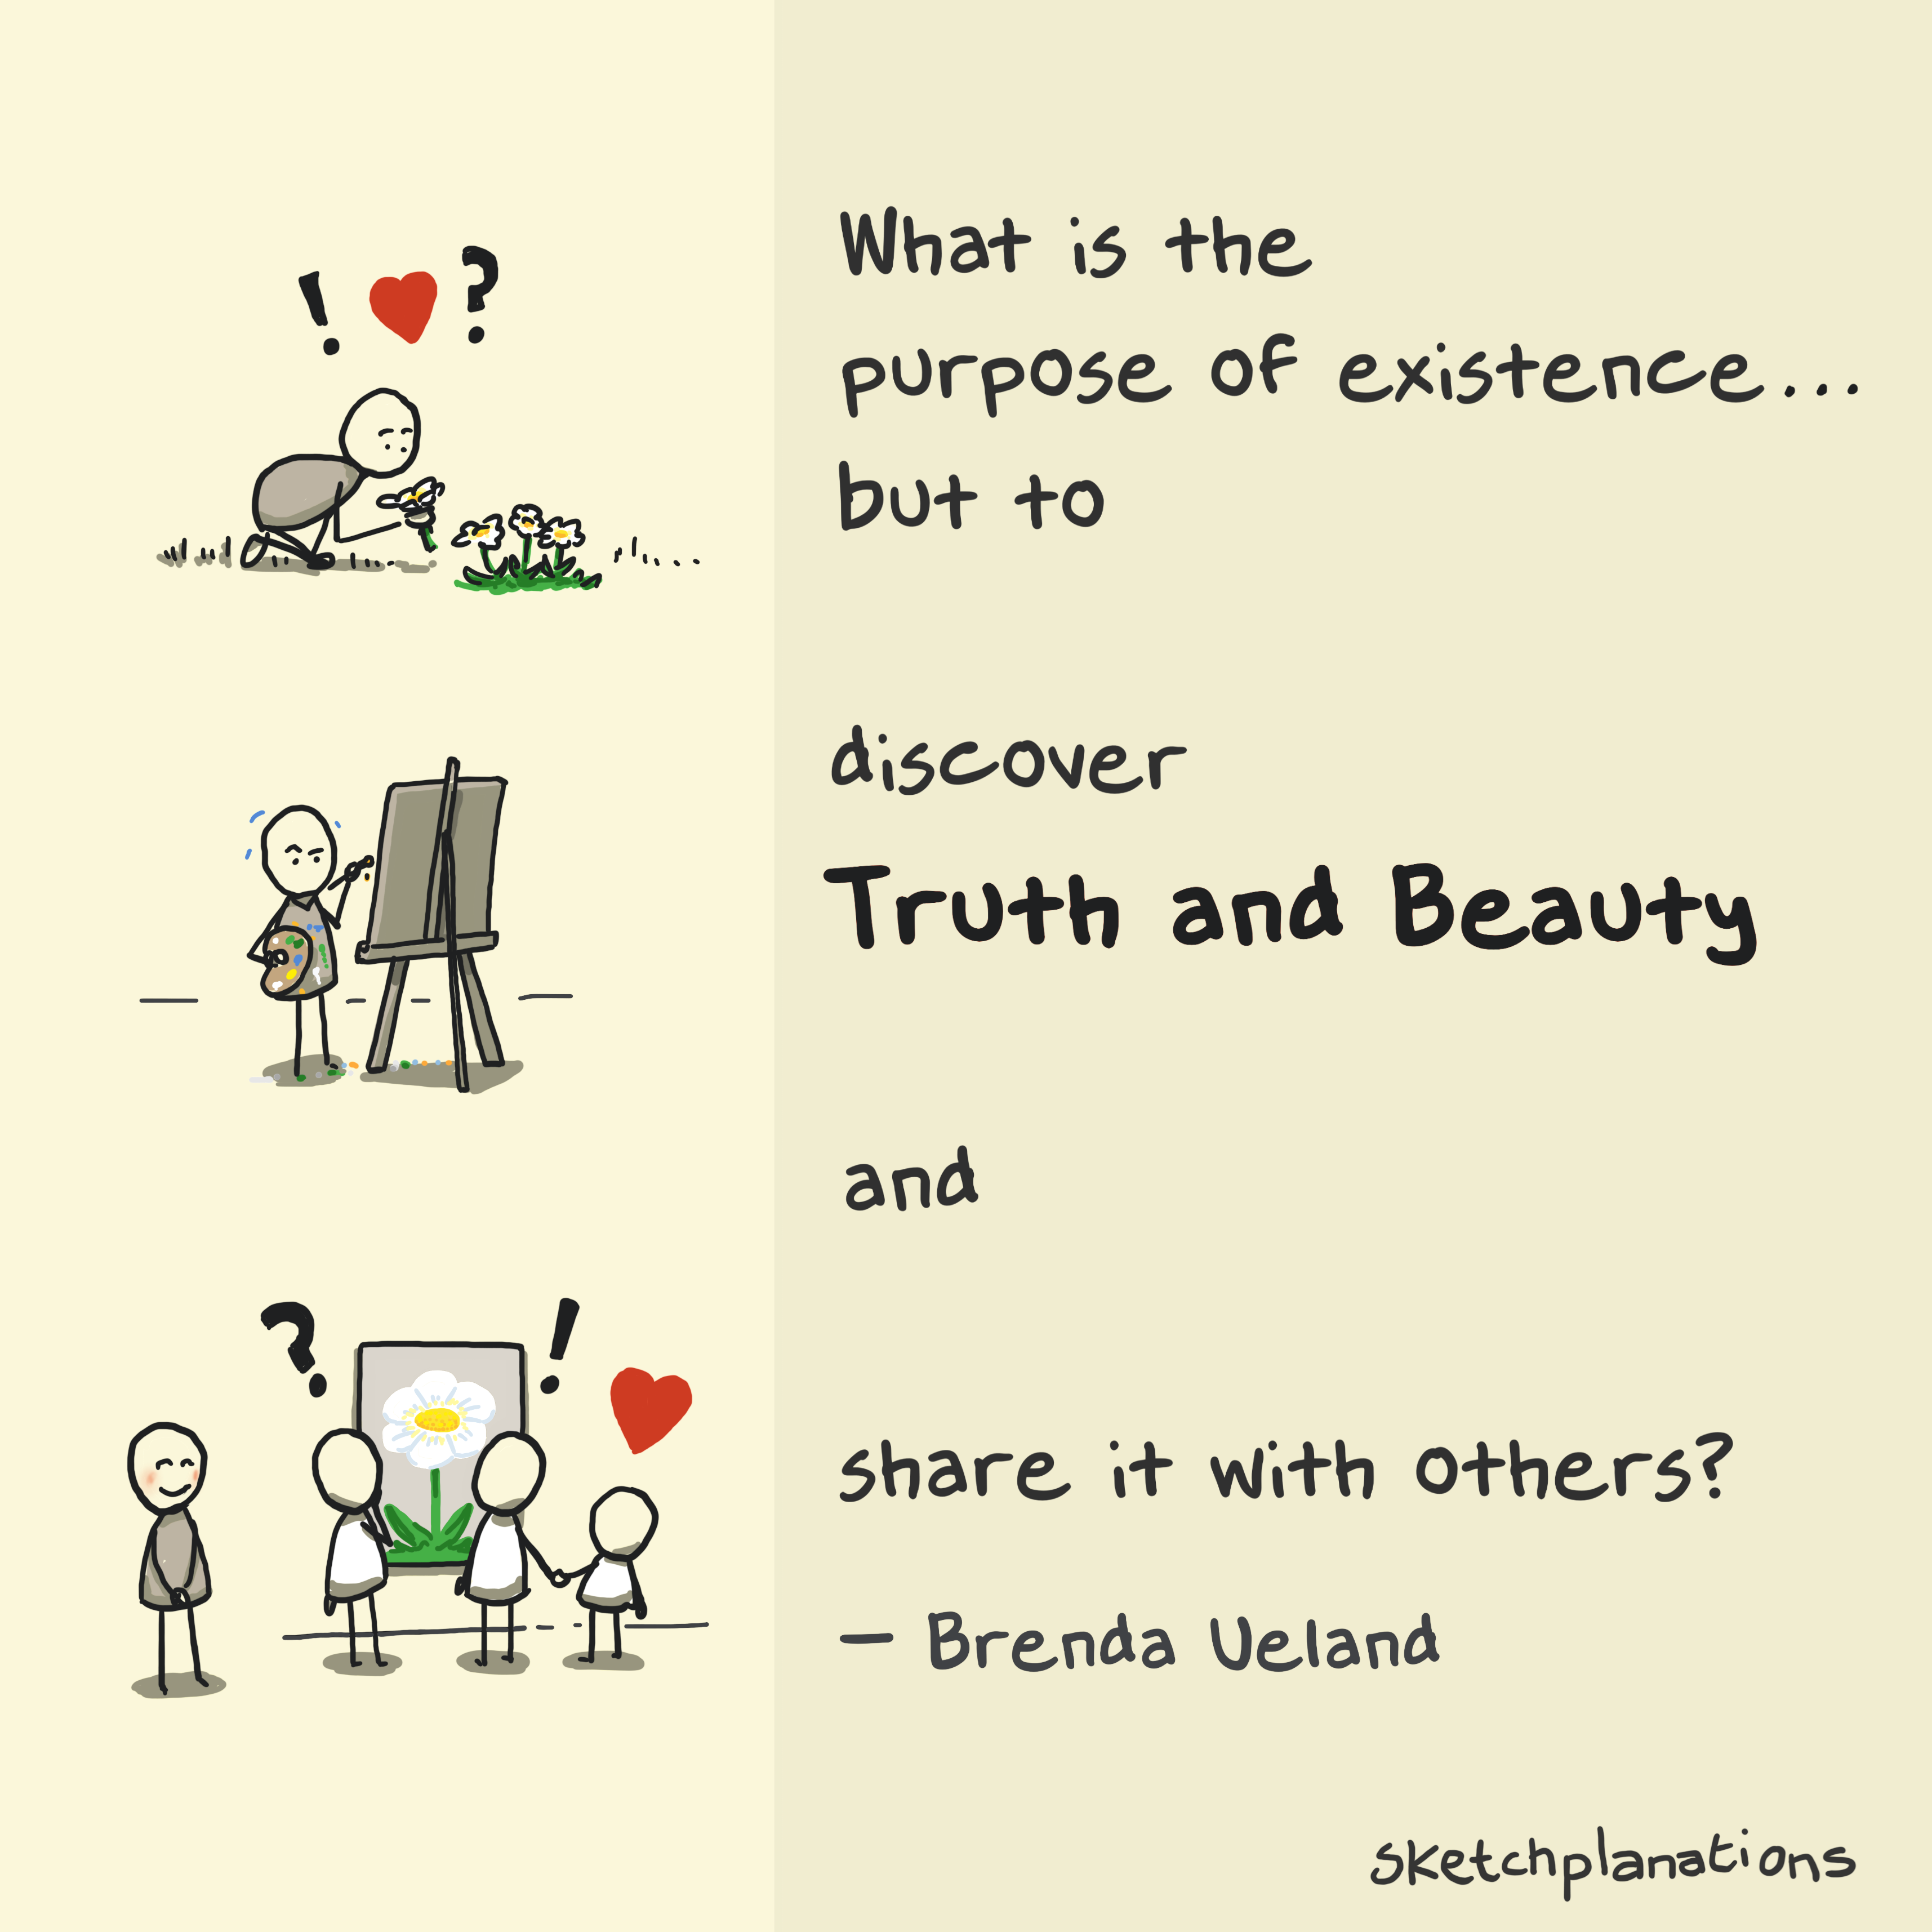 ! ?
What is the
purpose of existence...
but to
discover
Truth and Beauty
and
? !
share it with others?
— Brenda Ueland
sketchplanations